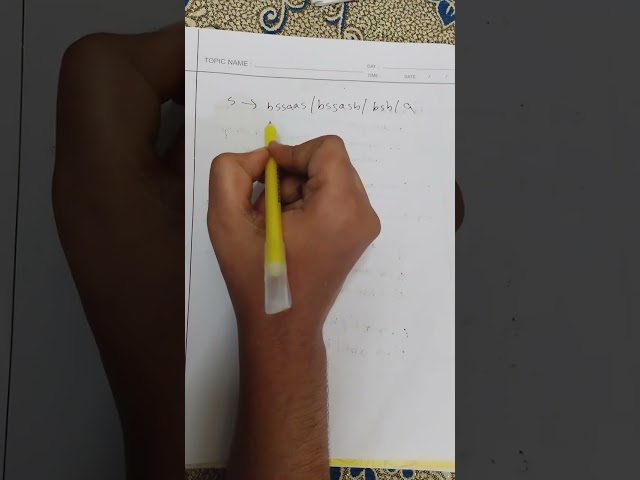 TOPIC NAME: DAY:
TIME: DATE: / /
s → bssaas / bssasb / bsb / a